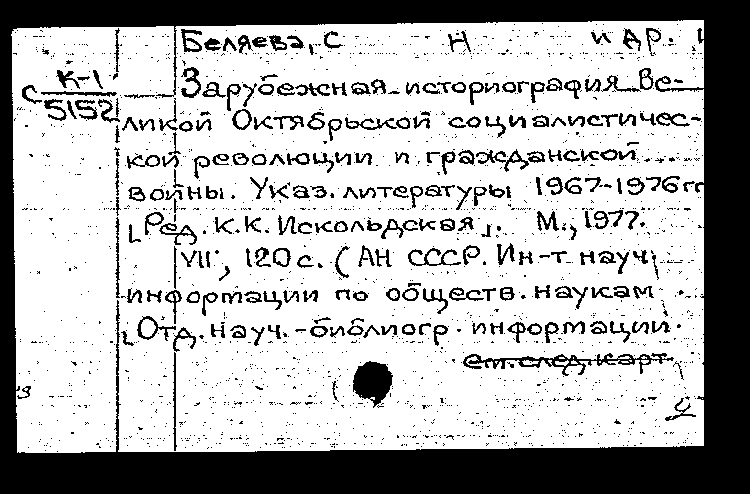 Беляева, С Н и др.
С К-1
5152
Зарубежная историография Ве-
ликой Октябрьской социалистичес-
кой революции и гражданской
войны. Указ. литературы 1967-1976гг
[Ред. К.К. Искольдская]. М., 1977.
VII, 120 с. (АН СССР. Ин-т науч.
информации по обществ. наукам
[Отд. науч.-библиогр. информации.
см. след. карт.